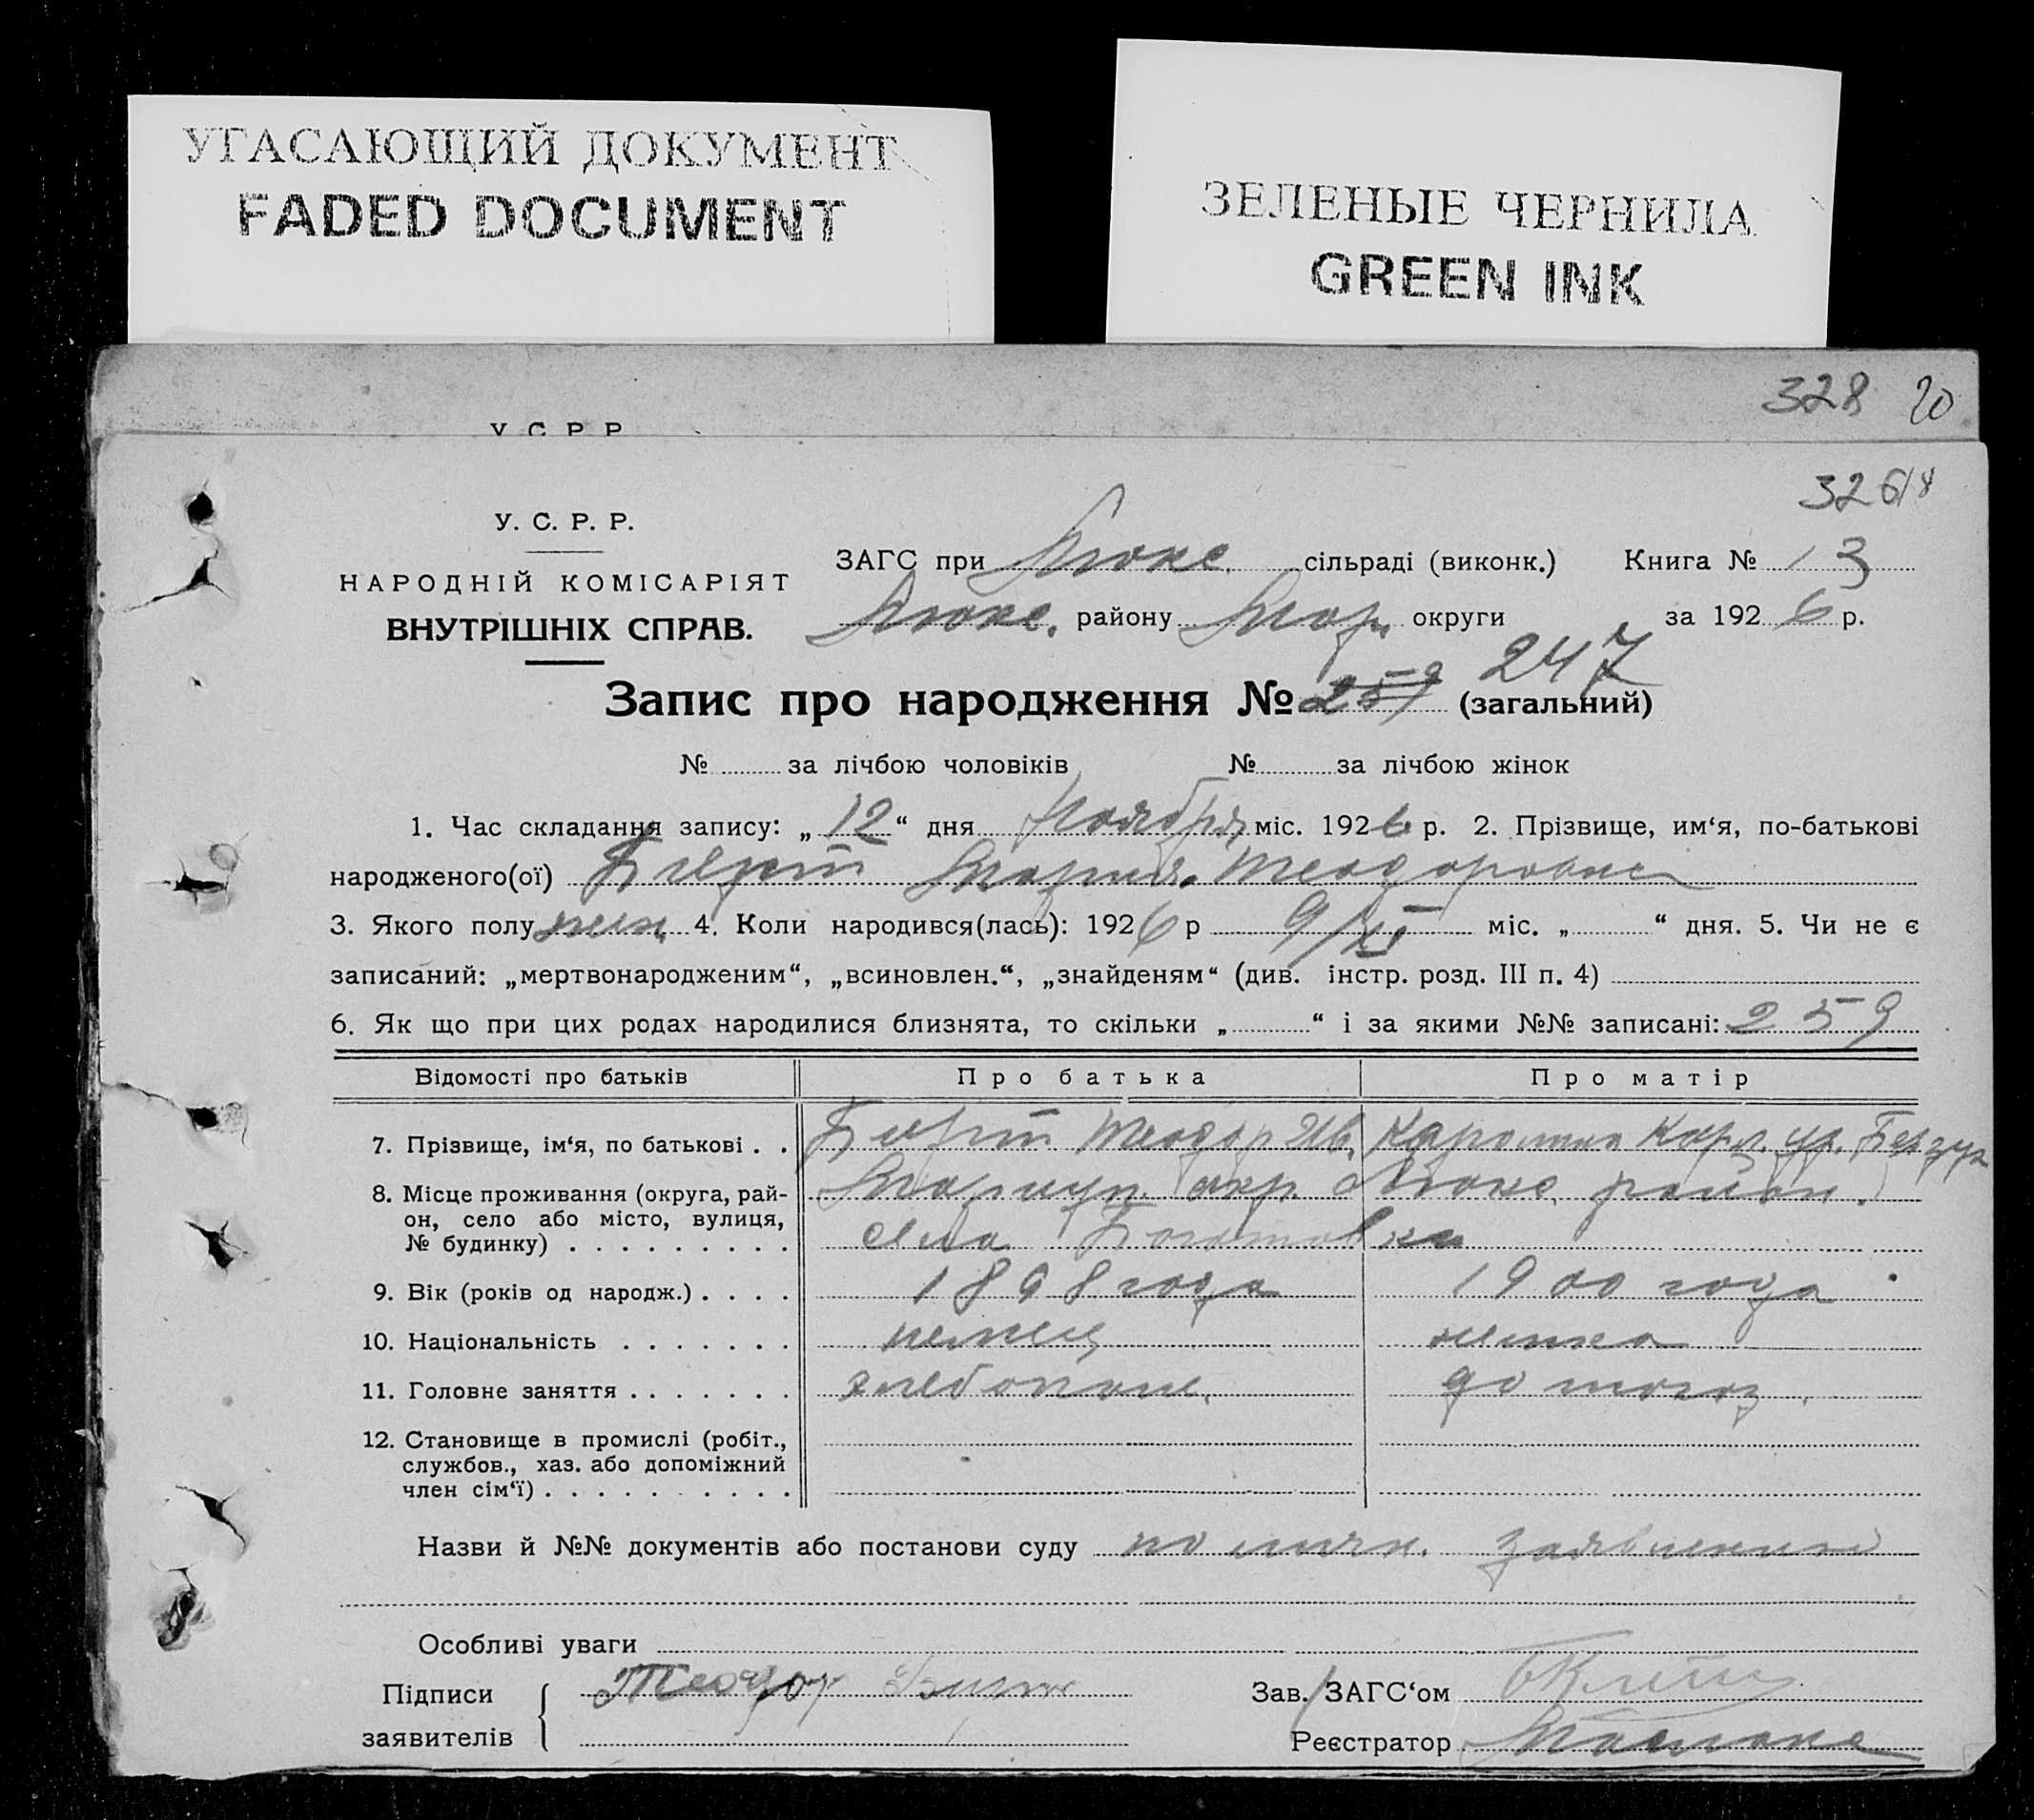 УГАСАЮЩИЙ ДОКУМЕНТ
FADED DOCUMENT
ЗЕЛЕНЫЕ ЧЕРНИЛА
GREEN INK
328 20
У. С. Р. Р.
326
У. С. Р. Р.
НАРОДНІЙ КОМІСАРІЯТ
ВНУТРІШНІХ СПРАВ.
ЗАГС при Люкс. сільраді (виконк.) Книга № 13
Люкс. району Мар. округи за 1926 р.
Запис про народження № 259 247 (загальний)
№ за лічбою чоловіків № за лічбою жінок
1. Час складання запису: „12“ дня Ноября міс. 1926 р. 2. Прізвище, им‘я, по-батькові
народженого(ої) Мария Теодоровна
3. Якого полу жен. 4. Коли народився(лась): 1926 р 9/XI міс. „ “ дня. 5. Чи не є
записаний: „мертвонародженим“, „всиновлен.“, „знайденям“ (див. інстр. розд. III п. 4)
6. Як що при цих родах народилися близнята, то скільки „ “ і за якими №№ записані: 259
Відомості про батьків Про батька Про матір
7. Прізвище, ім‘я, по батькові . . Теодор Ив. Каролина Карл. ур.
8. Місце проживання (округа, рай-
он, село або місто, вулиця,
№ будинку) . . . . . . . . .
Мариуп. окр. Люкс. район.
села
9. Вік (років од народж.) . . . . 1898 года 1900 года
10. Національність . . . . . . . немец немка
11. Головне заняття . . . . . . . хлебопаш. домохоз.
12. Становище в промислі (робіт.,
службов., хаз. або допоміжний
член сім‘ї) . . . . . . . . . .
Назви й №№ документів або постанови суду по личн. заявлению
Особливі уваги
Підписи
заявителів
Теодор
Зав. ЗАГС‘ом
Реєстратор